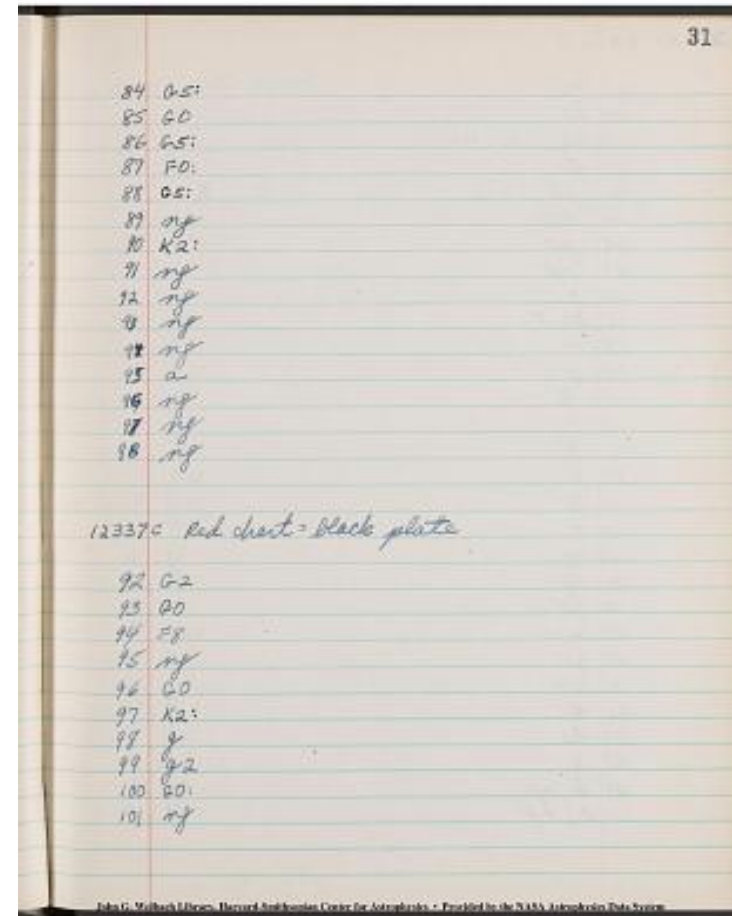 31
84 G5:
85 G0
86 G5:
87 F0:
88 G5:
89 ng
90 K2:
91 ng
92 ng
93 ng
94 ng
95 a
96 ng
97 ng
98 ng
12337C Red chart = black plate
92 G2
93 G0
94 F8
95 ng
96 G0
97 K2:
98 g
99 g2
100 G0:
101 ng
John G. Wolbach Library, Harvard-Smithsonian Center for Astrophysics • Provided by the NASA Astrophysics Data System